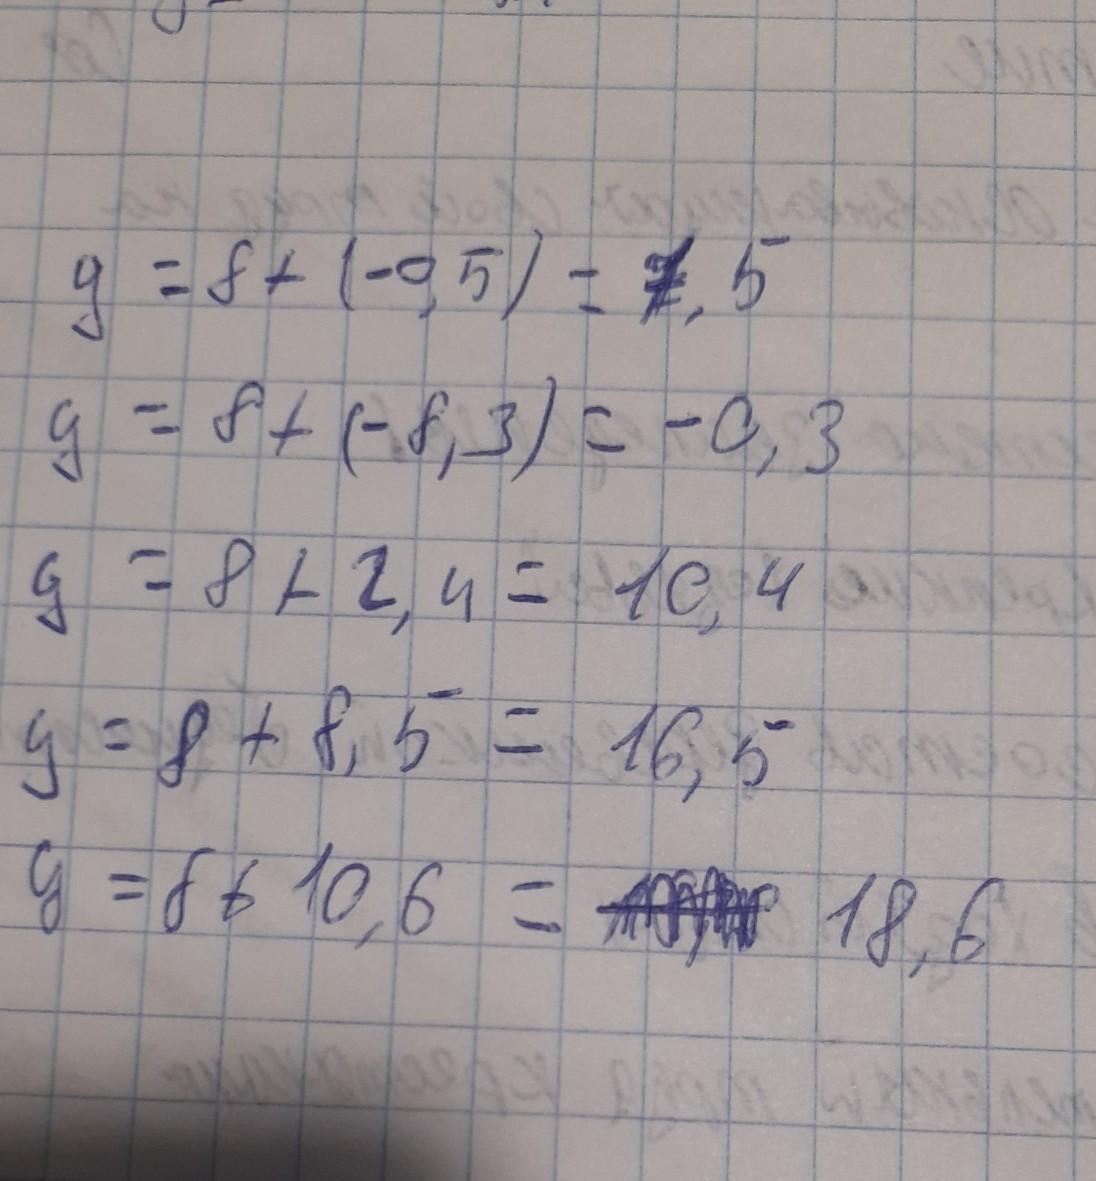 y = 8 + (-0,5) = 7,5
y = 8 + (-8,3) = -0,3
y = 8 + 2,4 = 10,4
y = 8 + 8,5 = 16,5
y = 8 + 10,6 = 18,6